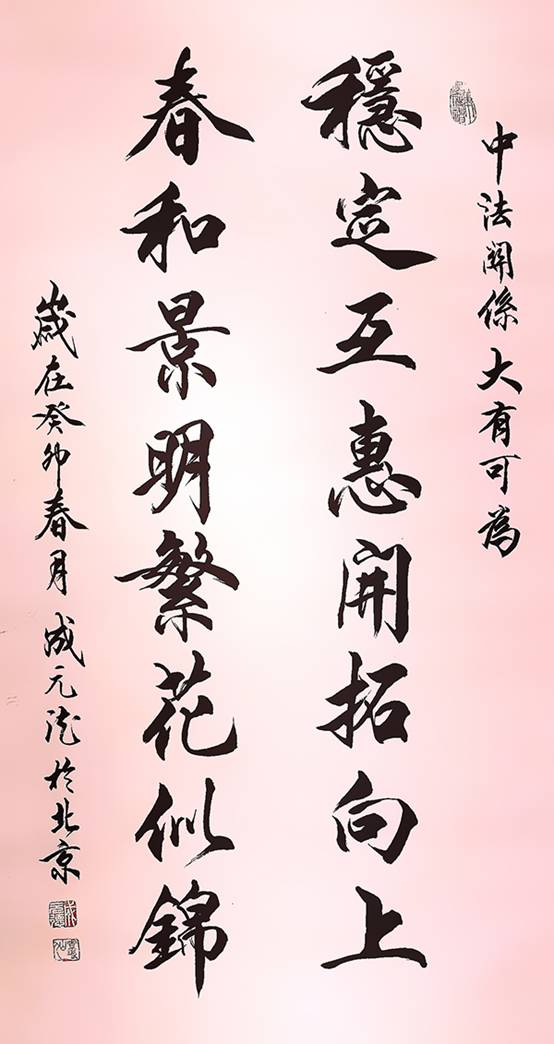 中法關係大有可為
穩定互惠開拓向上
春和景明繁花似錦
歲在癸卯春月成元法於北京